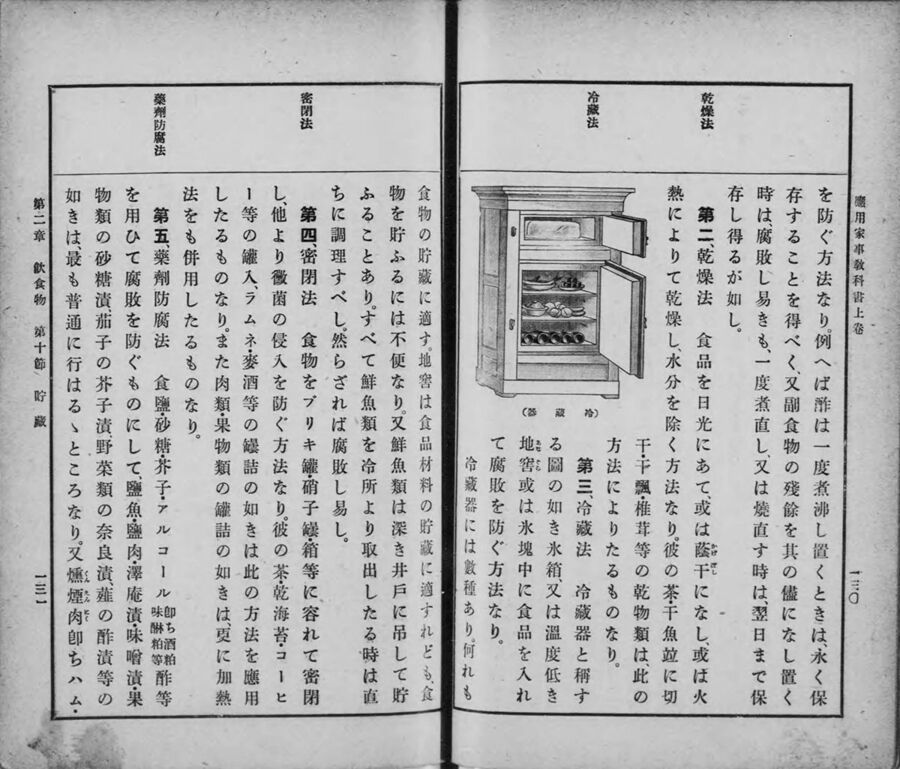 應用家事教科書上卷
一三〇
乾燥法
冷藏法
を防ぐ方法なり。例へば酢は一度煮沸し置くときは、永く保
存することを得べく、又副食物の殘餘を其の儘になし置く
時は、腐敗し易きも、一度煮直し、又は燒直す時は、翌日まで保
存し得るが如し。
第二、乾燥法 食品を日光にあて、或は蔭干になし、或は火
かげぼし
熱によりて乾燥し、水分を除く方法なり。彼の茶・干魚並に切
干・干瓢・椎茸等の乾物類は、此の
方法によりたるものなり。
第三、冷藏法 冷藏器と稱す
る圖の如き氷箱、又は溫度低き
地窖或は氷塊中に食品を入れ
あなぐら
て腐敗を防ぐ方法なり。
冷藏器には數種あり。何れも
(冷藏器)
密閉法
藥劑防腐法
食物の貯藏に適す。地窖は食品材料の貯藏に適すれども、食
物を貯ふるには不便なり。又鮮魚類は深き井戶に吊して貯
ふることあり。すべて鮮魚類を冷所より取出したる時は直
ちに調理すべし。然らざれば腐敗し易し。
第四、密閉法 食物をブリキ罐・硝子罎・箱等に容れて密閉
し、他より黴菌の侵入を防ぐ方法なり。彼の茶・乾海苔・コーヒ
ー等の罐入、ラムネ麥酒等の罎詰の如きは此の方法を應用
したるものなり。また肉類・果物類の罐詰の如きは、更に加熱
法をも併用したるものなり。
第五、藥劑防腐法 食鹽・砂糖・芥子・アルコール卽ち酒粕味醂粕等酢等
を用ひて腐敗を防ぐものにして鹽魚・鹽肉・澤庵漬・味噌漬・果
物類の砂糖漬茄子の芥子漬野菜類の奈良漬、薤の酢漬等の
如きは、最も普通に行はるゝところなり。又燻煙肉卽ちハム・
くんえんにく
第二章 飮食物 第十節 貯藏
一三一